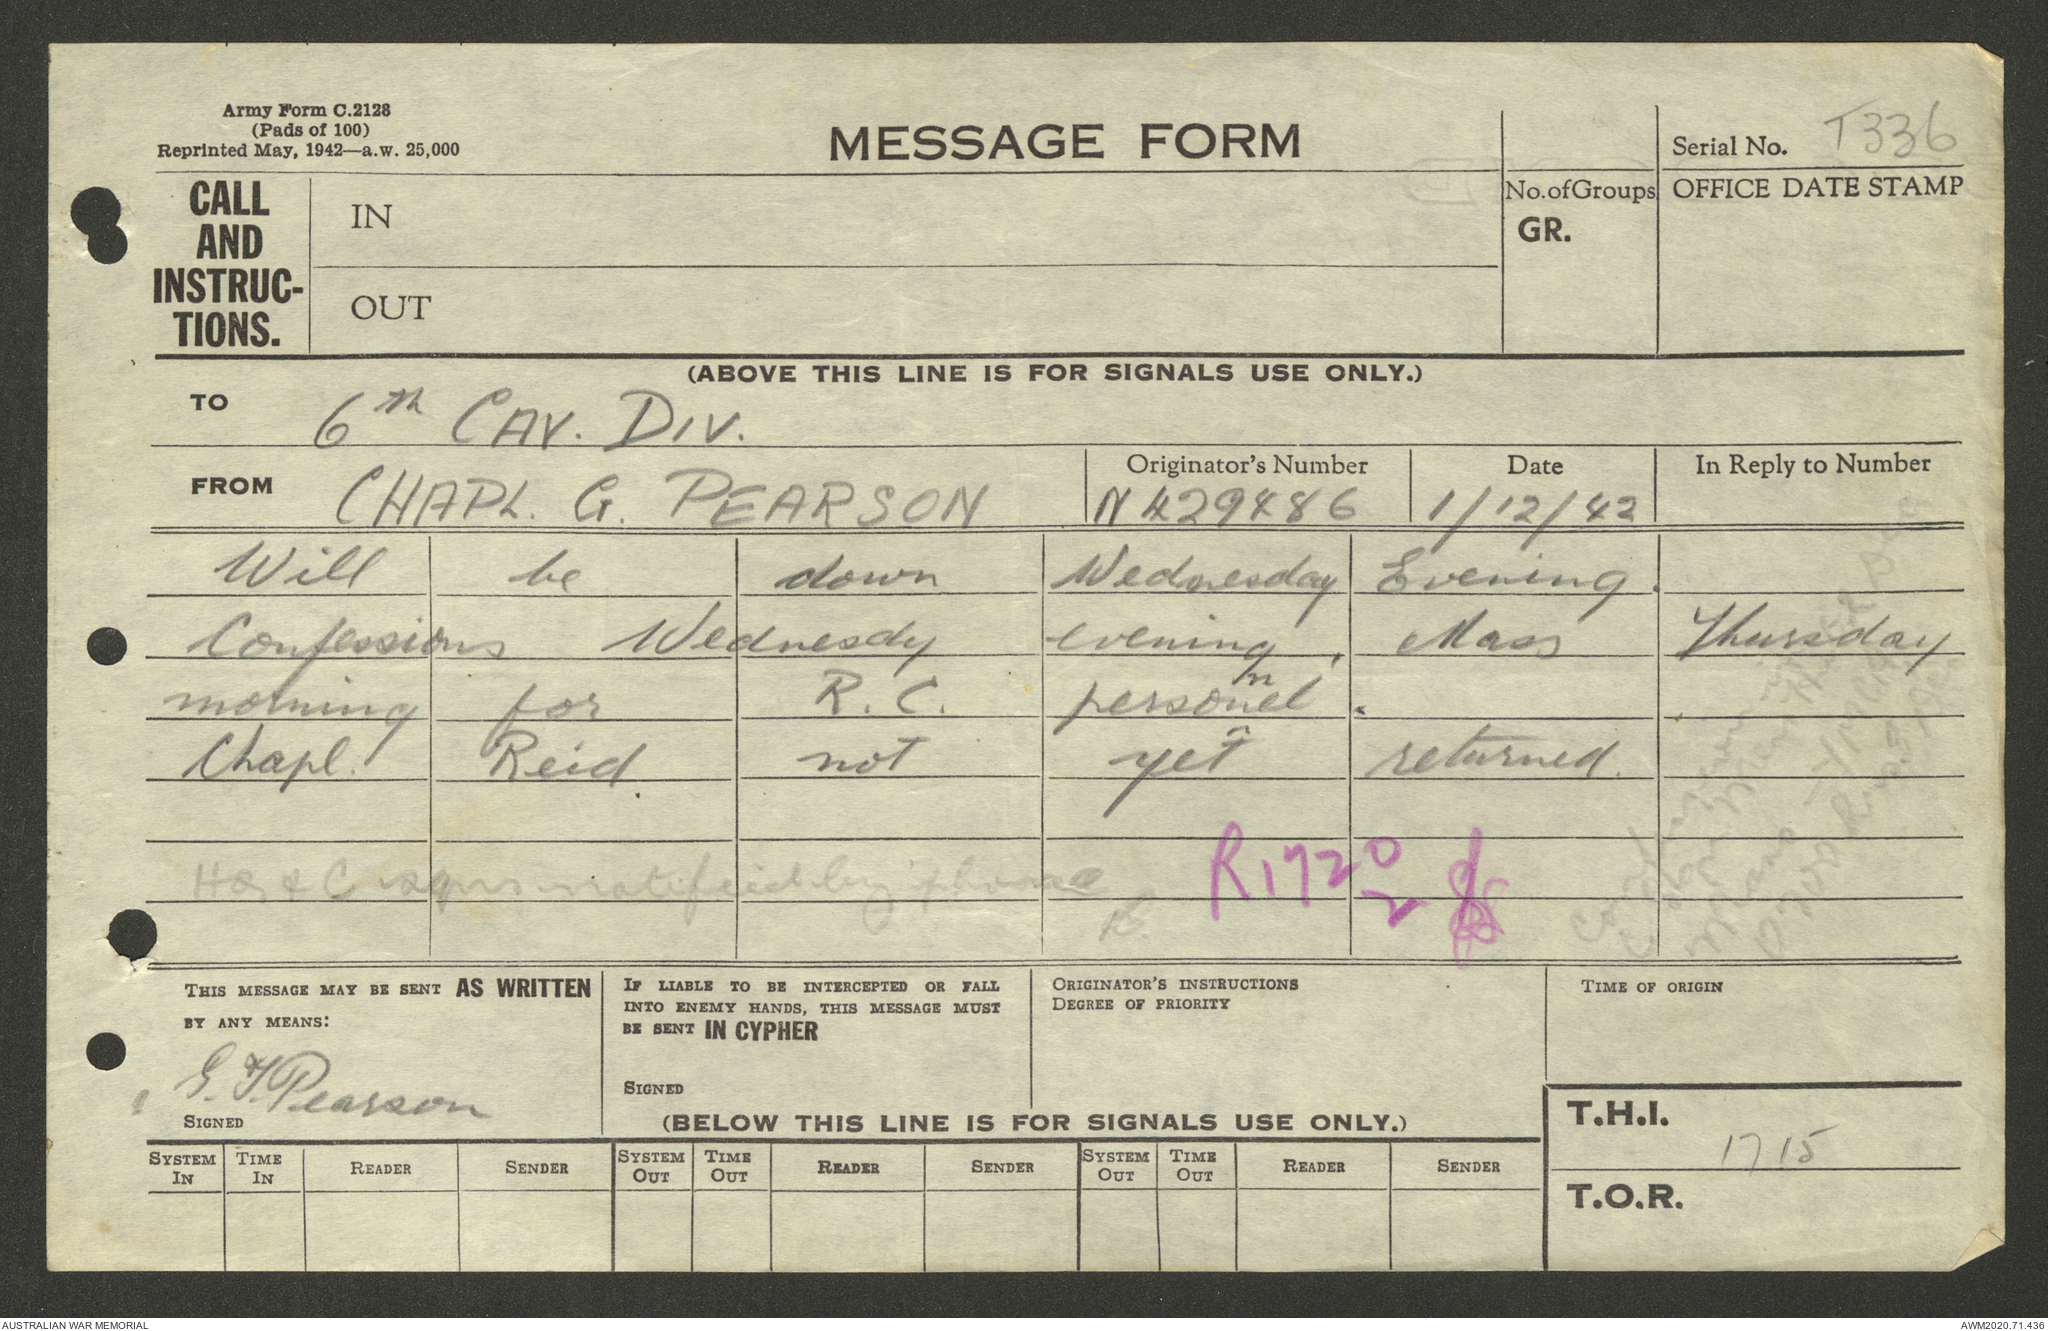 Army Form C.2128
(Pads of 100)
Reprinted May, 1942—a.w. 25,000
MESSAGE FORM
Serial No. T336
CALL AND INSTRUC-TIONS.
IN
OUT
No. of Groups
GR.
OFFICE DATE STAMP
(ABOVE THIS LINE IS FOR SIGNALS USE ONLY.)
TO 6th CAV. DIV.
FROM CHAPL. G. PEARSON
Originator's Number N429486
Date 1/12/42
In Reply to Number
Will be down Wednesday Evening.
Confessions Wednesdy evening, Mass Thursday
morning for R.C. personnel.
Chapl. Reid not yet returned.
notified by phone
R1720
2
THIS MESSAGE MAY BE SENT AS WRITTEN
BY ANY MEANS:
G. F. Pearson
SIGNED
IF LIABLE TO BE INTERCEPTED OR FALL
INTO ENEMY HANDS, THIS MESSAGE MUST
BE SENT IN CYPHER
SIGNED
ORIGINATOR'S INSTRUCTIONS
DEGREE OF PRIORITY
TIME OF ORIGIN
(BELOW THIS LINE IS FOR SIGNALS USE ONLY.)
T.H.I. 1715
T.O.R.
SYSTEM IN TIME IN READER SENDER SYSTEM OUT TIME OUT READER SENDER SYSTEM OUT TIME OUT READER SENDER
AUSTRALIAN WAR MEMORIAL
AWM2020.71.436